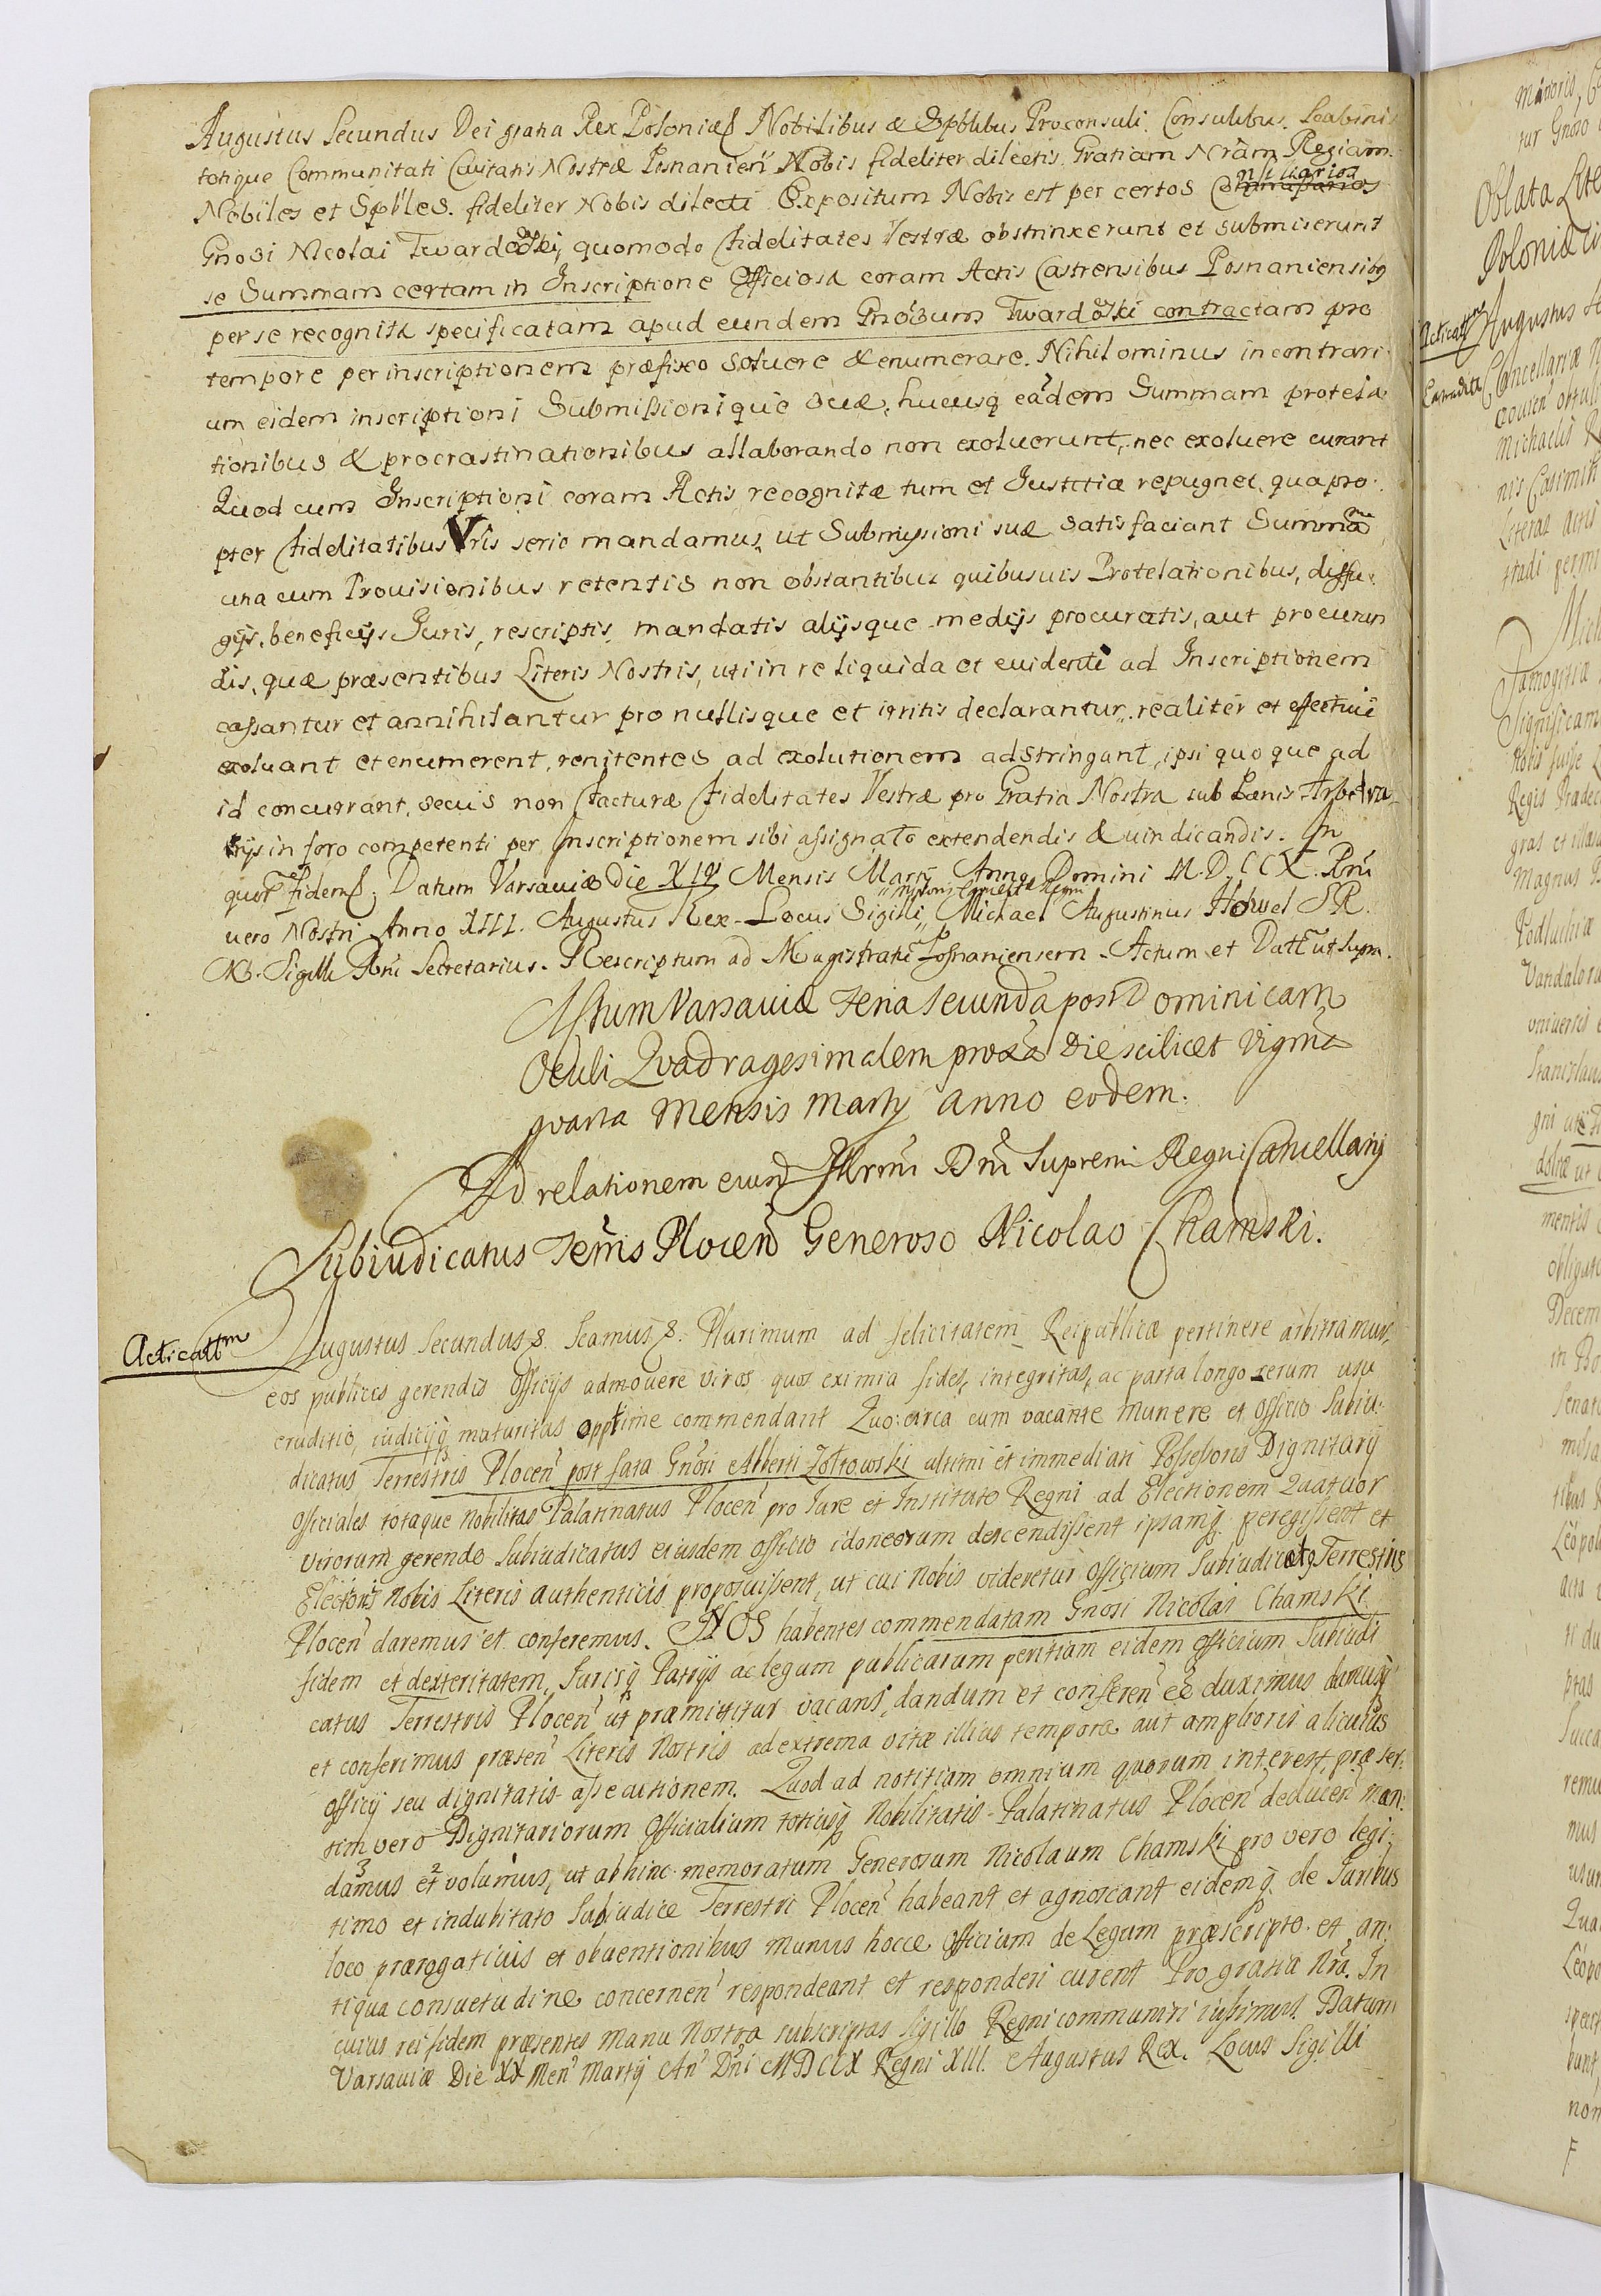 Augustus Secundus Dei gratia Rex Poloniæ Nobilibus & Spblibus Proconsuli, Consulibus, Scabinis
totique Communitati Civitatis Nostræ Posnanien Nobis fideliter dilectis Gratiam Nram Regiam.
Nobiles et Spbles. fideliter Nobis dilecti Expositum Nobis est per certos Consiliarios
Gnosi Nicolai Twardowski, quomodo fidelitates Vestræ obstrinxerunt et submiserunt
se Summam certam in Inscriptione Officiosa coram Actis Castrensibus Posnaniensibq
per se recognita specificatam apud eundem Gnosum Twardowski contractam pro
tempore per inscriptionem præfixo Soluere & enumerare. Nihilominus in contrari
um eidem inscriptioni Submissionique suæ, hucusq eadem Summam protela
tionibus & procrastinationibus allaborando non exoluerunt, nec exoluere curant
Quod cum Inscriptioni coram Actis recognitæ tum et Iustitiæ repugnet, qua pro
pter fidelitatibus Vris serio mandamus, ut Submissioni suæ satisfaciant Summa
una cum Prouisionibus retentis non obstantibus quibusuis Protelationibus, diffu
gijs, beneficijs Juris, rescriptis, mandatis alijsque medijs procuratis, aut procuran
dis, quæ præsentibus Literis Nostris, uti in re liquida et euidenti ad Inscriptionem
cassantur et annihilantur pro nullisque et irritis declarantur, realiter et effectiue
exoluant et enumerent, renitentes ad exolutionem adstringant, ipsi quoque ad
id concurrant, secus non facturæ fidelitates Vestræ pro Gratia Nostra sub Pænis Arbitra
rijs in foro competenti per Inscriptionem sibi assignato extendendis & uindicandis. In
quor fidem. Datum Varsauiæ Die XIV Mensis Martij Anno Domini M.D.CCX. Rni
uero Nostri Anno XIII. Augustus Rex. Locus Sigilli Michael Augustinus SR
Mb. Sigilli Rni Secretarius. Rescriptum ad Magistratu Posnaniensem. Actum et Datt ut supra.
Actum Varsauiæ Feria secunda post Dominicam
Oculi Quadragesimalem proxa Die scilicet Vigma
quarta Mensis Martij anno eodem.
Ad relationem eiusd Illrmi Dni Supremi Regni Cancellarij
Subiudicatus Terris Plocen Generoso Nicolao Chamski.
Acticattm
Augustus Secundus &. Seamus &. Plurimum ad felicitatem Reipublicæ pertinere arbitramur,
eos publicis gerendis officijs admouere viros, quos eximia fides, integritas, ac parta longo rerum usu
eruditio, iudicijq maturitas apprime commendant Quo circa cum vacante Munere et officio Subiu
dicatus Terrestris Plocen post fata Gnosi Alberti Zoltowski ultimi et immediati Possessoris Dignitarij
officiales totaque Nobilitas Palatinatus Plocen pro Jure et Instituto Regni ad Electionem Quatuor
virorum gerendo Subiudicatus eiusdem officio idoneorum descendissent ipsamq. peregissent et
Electoris Nobis Literis authenticis proposuissent, ut cui Nobis videretur officium Subiudicatq Terrestris
Plocen daremus et conferemus. NOS habentes commendatam Gnosi Nicolai Chamski
fidem et dexteritatem, Jurisq Patrijs ac legum publicarum peritiam eidem officium Subiudi
catus Terrestris Plocen ut præmittitur vacans, dandum et conferen eē duximus damusq
et conferimus præsen Literis Nostris ad extrema vitæ illius tempora, aut amplioris alicuius
officij seu dignitatis assecutionem. Quod ad notitiam omnium quorum interest, præser
tim vero Dignitariorum officialium totiusq Nobilitatis Palatinatus Plocen deducen man
damus et volumus, ut abhinc memoratum Generosum Nicolaum Chamski pro vero legi
timo et indubitato Subiudice Terrestri Plocen habeant et agnoscant eidemq. de Juribus
loco prærogatiuis et obuentionibus munus hocce officium de Legum præscripto et an
tiqua consuetudine concernen respondeant et responderi curent Pro gratia Nra. In
cuius rei fidem præsentes manu Nostra subscriptas sigillo Regni communiri iussimus. Datum
Varsauiæ Die XX Men Martij An Dni MDCCX Regni XIII. Augustus Rex. Locus Sigilli
Oblata Lite
Poloniæ
Acticattm
Augustus
Cancellariæ
Michaelis
nis Casimiri
Literas Actis
Significam
Regis
Magnus
Podlachiæ
Vandaloru
vniuersis
Stanislaus
obligato
Decem